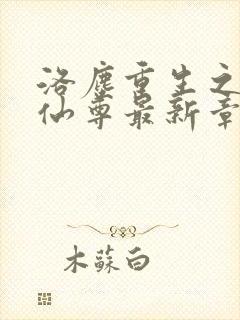 洛塵重生之
仙尊最新章
木蘇白